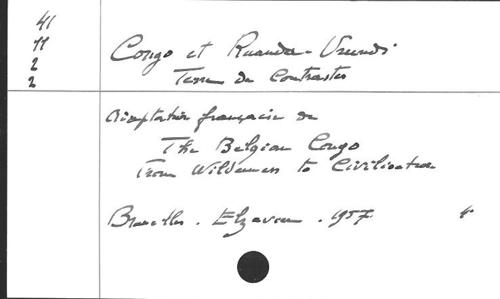 41
11
2
2
Congo et Ruanda-Urundi
Terre de Contrastes
Adaptation française de
The Belgian Congo
From Wilderness to Civilisation
Bruxelles. Elzevier. 1957